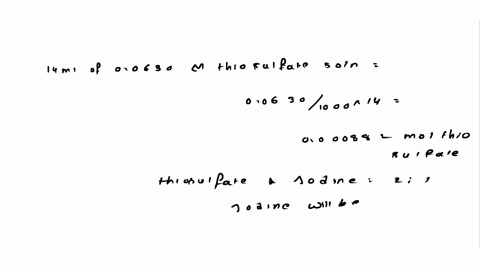 14ml of 0.0630 M thiosulfate soln =
0.0630/1000 × 14 =
0.00088 2 mol thio
sulfate
thiosulfate & Iodine = 2:1
Iodine will be